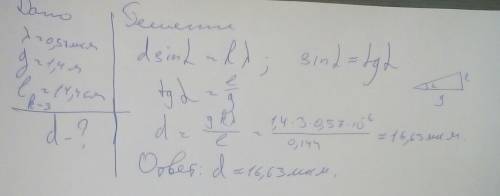 Дано
λ=0,57мкм
g=1,4м
l=14,4см
k=3
d-?
Решение
dsinL = kλ ; sinL=tgL
tgL = l/g
d = gkλ/l = 1,4·3·0,57·10⁻⁶/0,144 = 16,63мкм.
Ответ: d=16,63мкм.
L l
g